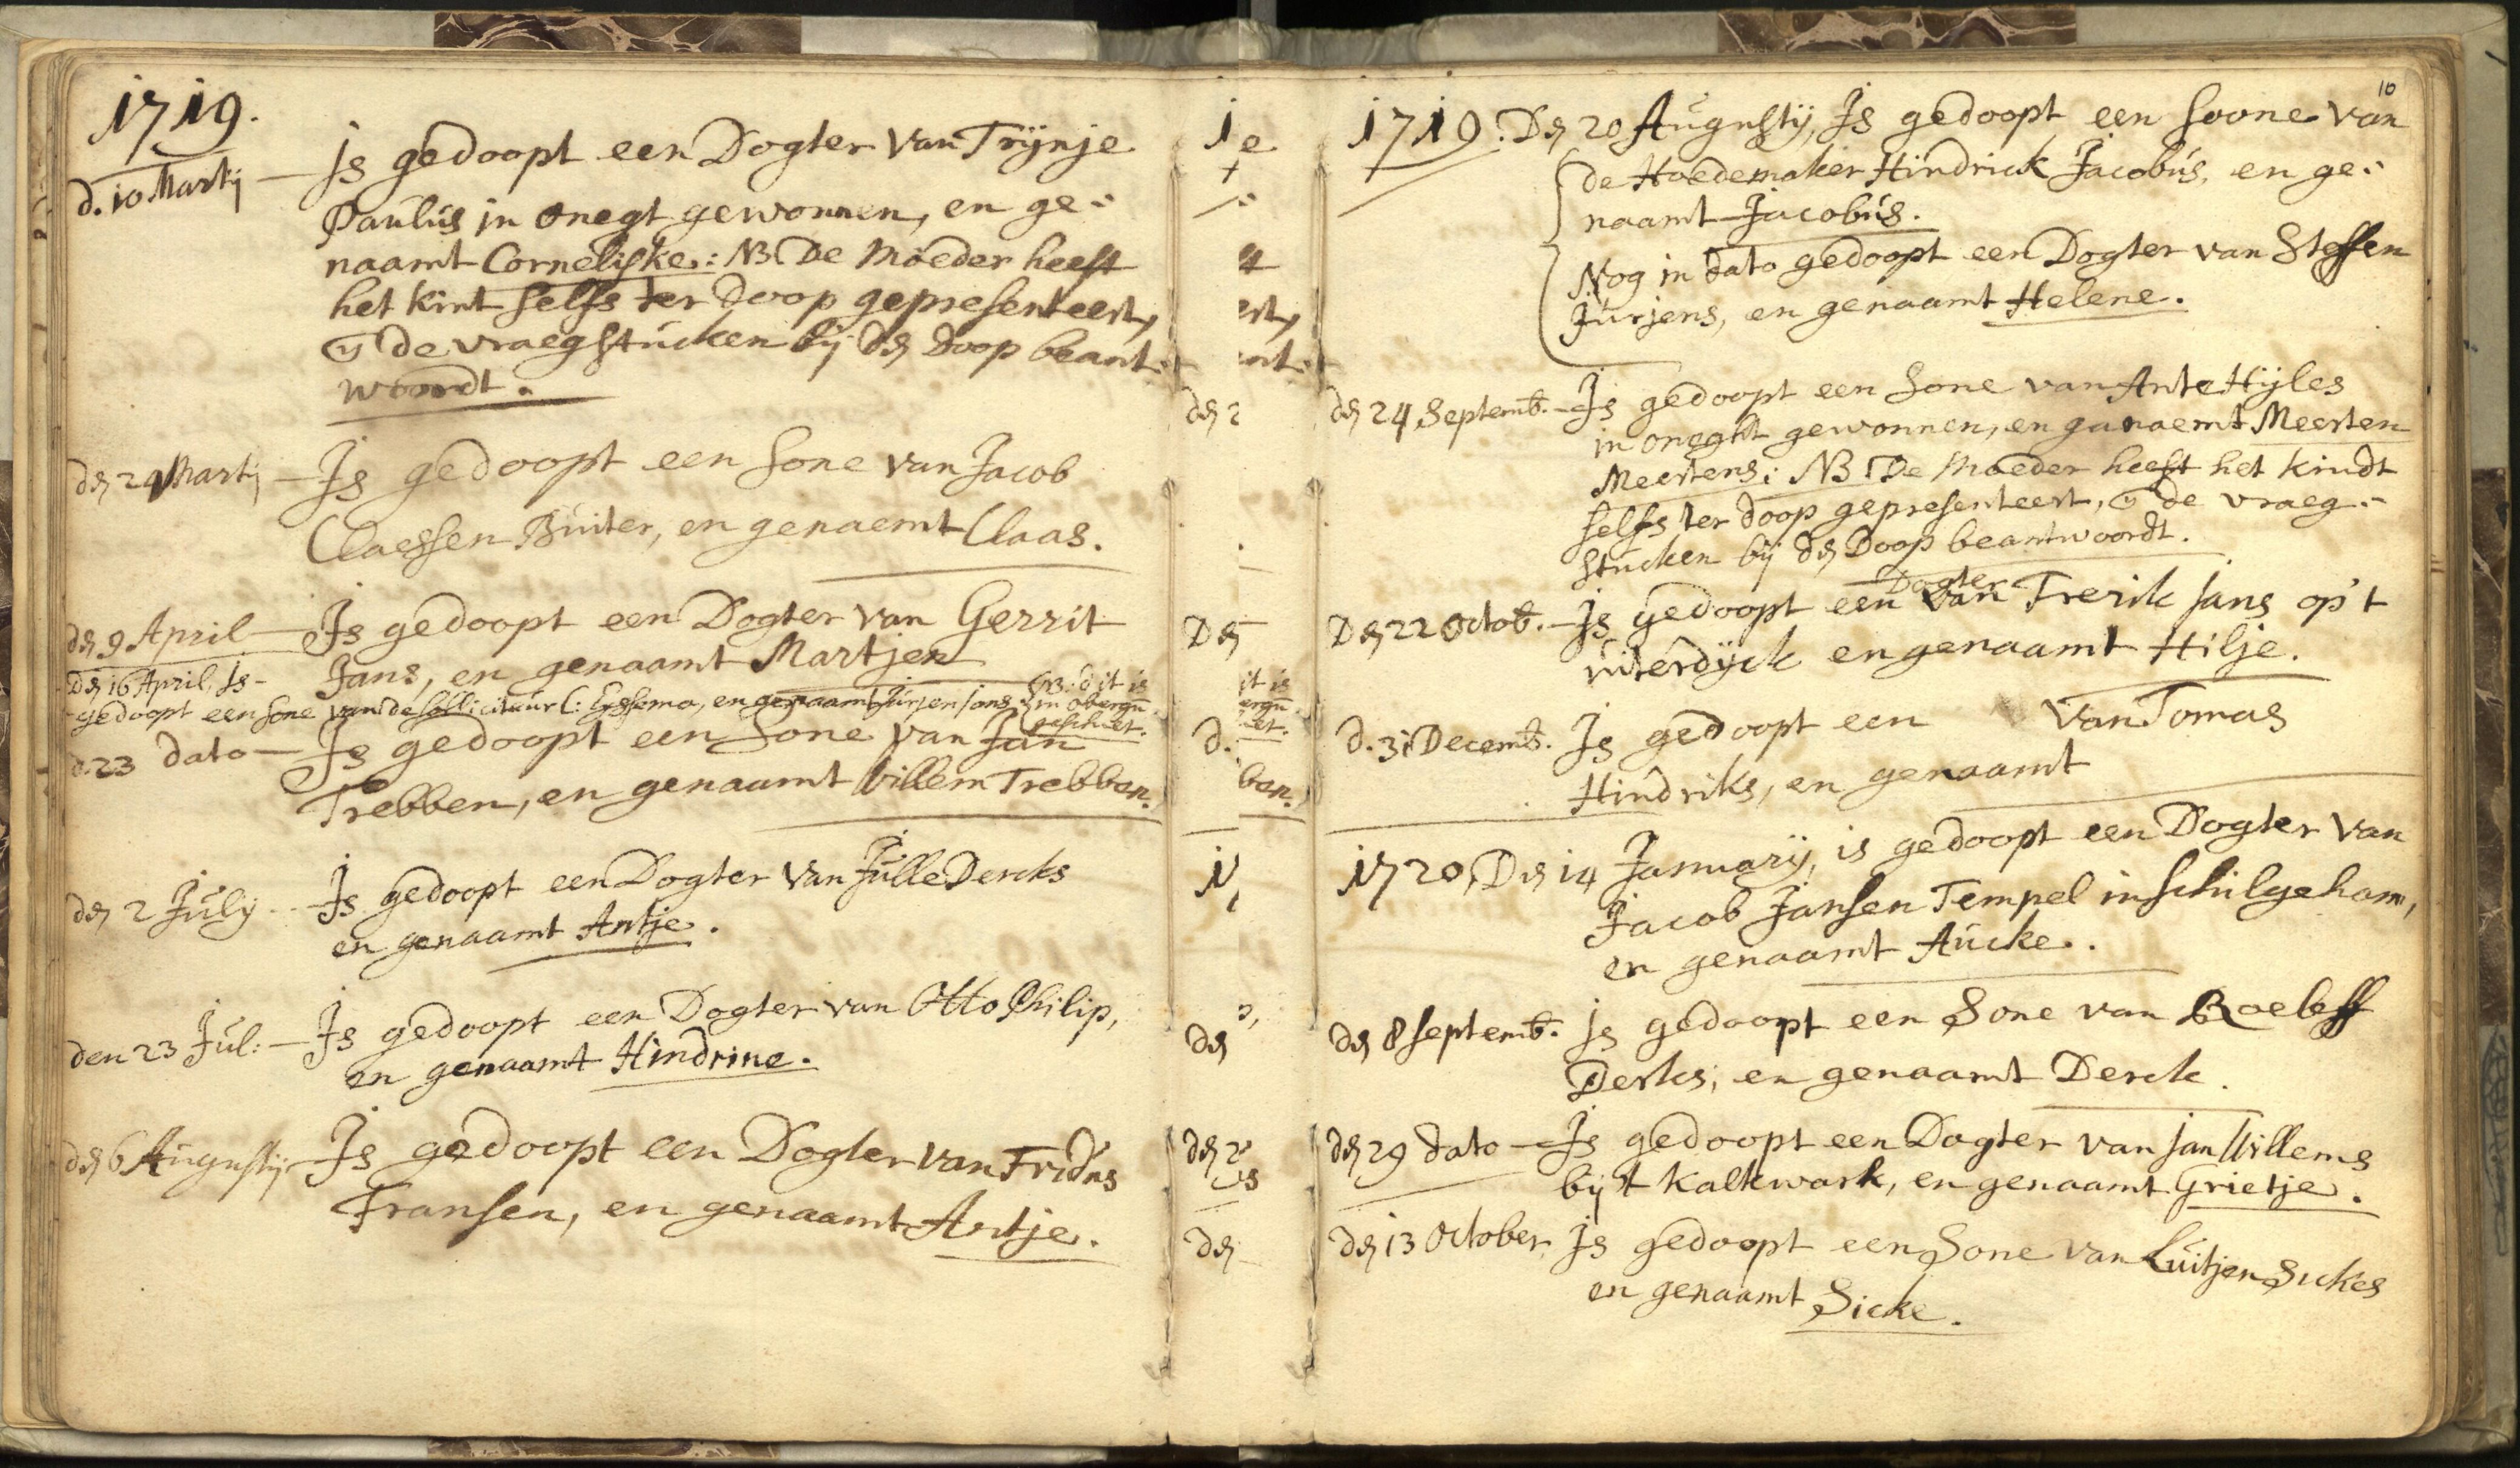 1719.
d. 10 Martij — Js gedoopt een Dogter van Trÿnje
Paulus jn onegt gewonnen, en ge=
naamt Corneliske: NB De Moeder heeft
het kint selfs ter doop gepresenteert,
en de vraegstucken bij dn Doop beant=
woordt.
dn 29 Martij — Js gedoopt een Sone van Jacob
Claessen Buiter, en genaemt Claas.
dn 9 April — Js gedoopt een Dogter van Gerrit
Jans, en genaamt Martjen
Dn 16 April, Js -
gedoopt een sone van de sollicituur C: Eyssema, en genaamt Jurjen Jans. (NB: dit is
in obergū
geschiet.
d. 23 dato — Js gedoopt een Sone van Jan
Trebben, en genaamt Willem Trebben.
dn 2 Julij — Js gedoopt een Dogter van Julle Dercks
en genaamt Antje.
den 23 Jul: — Js gedoopt een Dogter van Otto Philip,
en genaamt Hindrine.
dn 6 Augustij — Js gedoopt een Dogter van
Fransen, en genaamt Antje.
10
1719. Dn 20 Augustij, Js gedoopt een soone van
de Hoedemaker Hindrick Jacobus, en ge=
naamt Jacobus.
Nog in dato gedoopt een Dogter van Steffen
Jurjens, en genaamt Helene.
dn 24 Septemb. — Js gedoopt een Sone van Ante Hijles
in oneght gewonnen, en ganaemt Meerten
Meertens: NB De Moeder heeft het kindt
selfs ter doop gepresenteert, en de vraeg=
stucken bij dn Doop beantwoordt.
Dogter
Dn 22 Octob. — Js gedoopt een van Frerik Jans op't
uiterdijck en genaamt Hilje.
d. 31 Decemb. Js gedoopt een van Tomas
Hindriks, en genaamt
1720, Dn 14 Januarij, is gedoopt een Dogter van
Jacob Jansen Tempel in schilgeham,
en genaamt Aucke.
dn 8 Septemb. Js gedoopt een Sone van Roeleff
Derks, en genaamt Derck.
dn 29 dato — Js gedoopt een Dogter van Jan Willems
bij 't Kalkwark, en genaamt Grietje.
dn 13 October Js gedoopt een Sone van Luitjen Sickes
en genaamt Sicke.